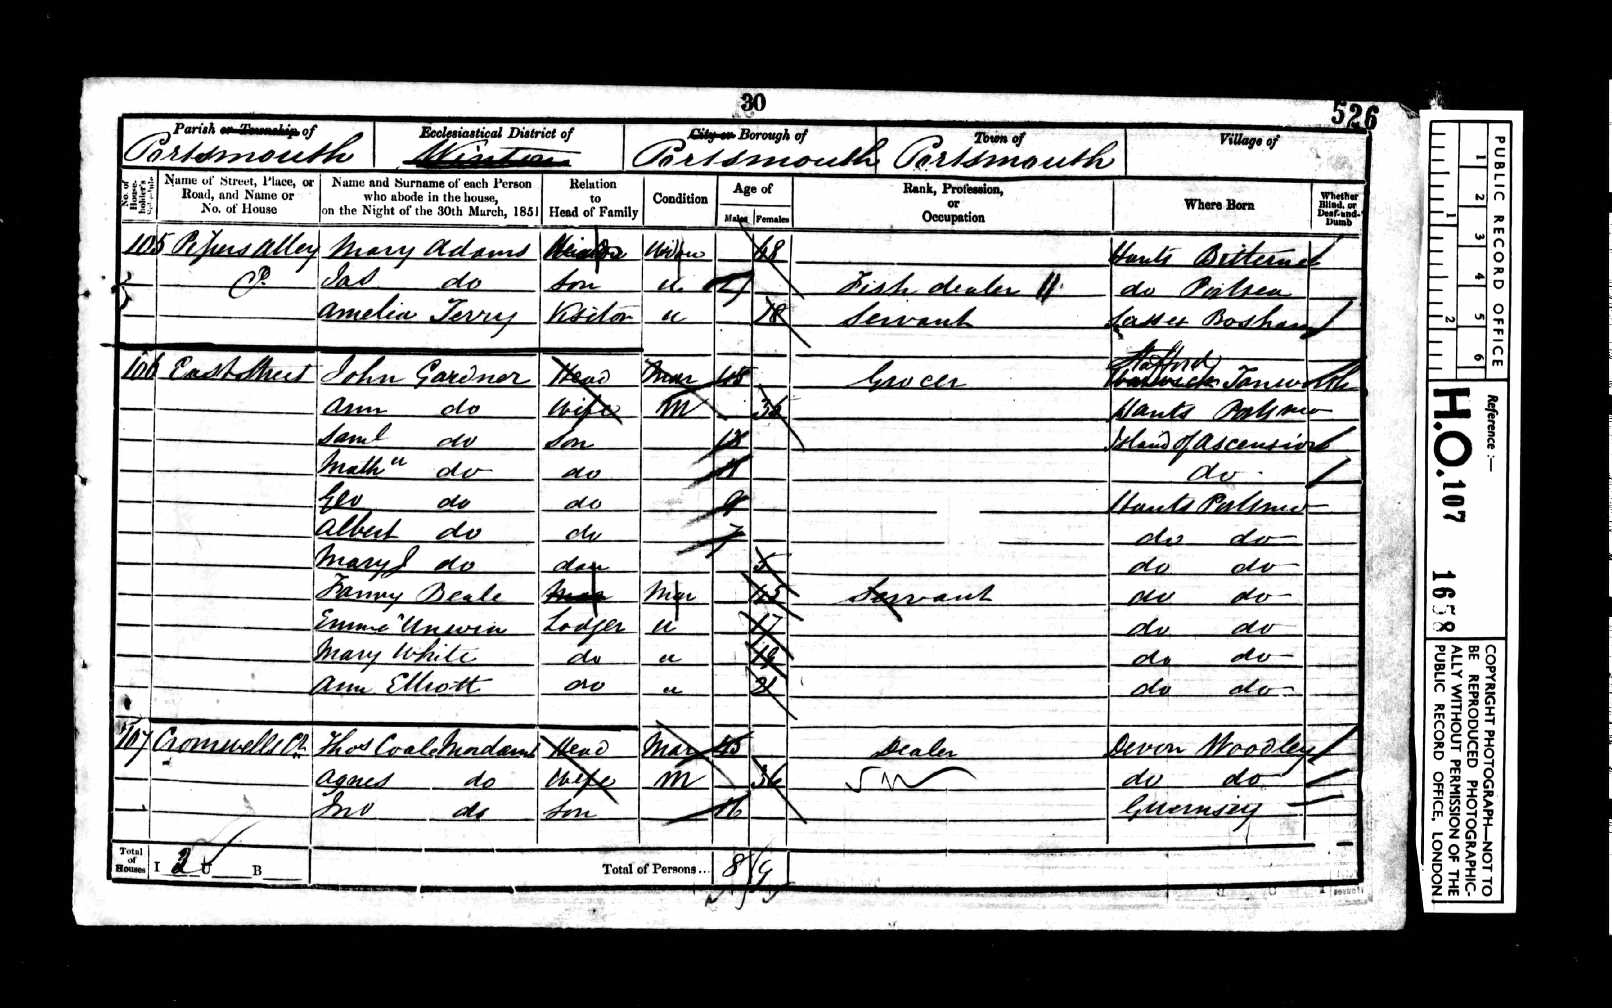 30
526
Parish or Township of
Portsmouth
Ecclesiastical District of
City or Borough of
Portsmouth
Town of
Portsmouth
Village of
No. of House-holder's Schedule
Name of Street, Place, or Road, and Name or No. of House
Name and Surname of each Person who abode in the house, on the Night of the 30th March, 1851
Relation to Head of Family
Condition
Age of
Males
Females
Rank, Profession, or Occupation
Where Born
Whether Blind, or Deaf-and-Dumb
105 Alley Mary Adams 48 Hants Bitterne
Jas do Son u Fish dealer do Portsea
Amelia Terry Visitor u 18 Servant Sussex Bosham
106 East Street John Gardner Head Mar 48 Grocer Stafford Tamworth
Ann do Wife M 36 Hants
Saml do Son Island of Ascension
do do do
Geo do do 9 Hants
Albert do do 7 do do
Mary J do dau 5 do do
Fanny Beale Mar 45 Servant do do
Unwin Lodger u 17 do do
Mary White do u do do
Ann Elliott do u 21 do do
107 Cromwells Ct Thos Coale Head Mar 45 Dealer Devon Woodley
Agnes do Wife M 36 do do
Jno do Son 16 Guernsey
Total of Houses I 3 U B Total of Persons... 8 9
PUBLIC RECORD OFFICE
1 2 3 4 5 6
1 2
Reference :—
H.O. 107 1658
COPYRIGHT PHOTOGRAPH—NOT TO
BE REPRODUCED PHOTOGRAPHIC-
ALLY WITHOUT PERMISSION OF THE
PUBLIC RECORD OFFICE, LONDON